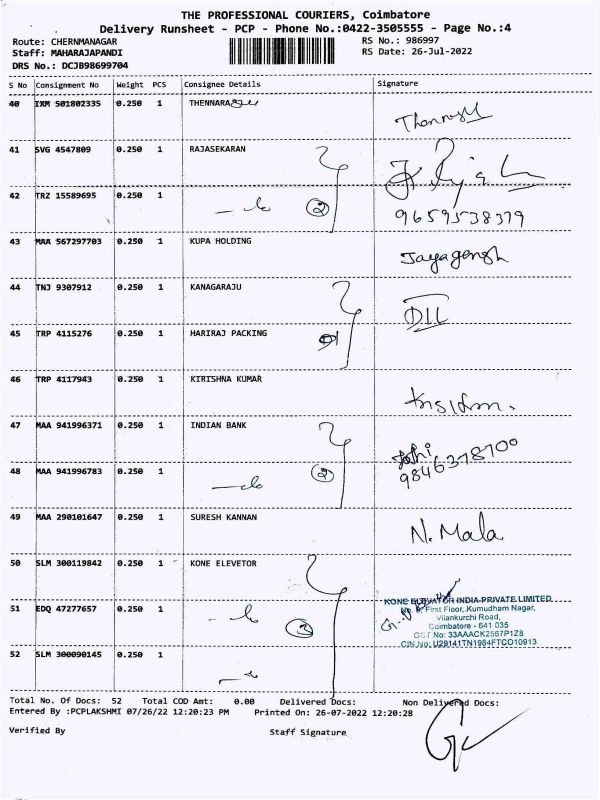 THE PROFESSIONAL COURIERS, Coimbatore
Delivery Runsheet - PCP - Phone No.:0422-3505555 - Page No.:4
Route: CHERNMANAGAR RS No.: 986997
Staff: MAHARAJAPANDI RS Date: 26-Jul-2022
DRS No.: DCJB98699704
S No Consignment No Weight PCS Consignee Details Signature
40 IXM 501802335 0.250 1
41 SVG 4547809 0.250 1 RAJASEKARAN
42 TRZ 15589695 0.250 1 2 9659538379
43 MAA 567297703 0.250 1 KUPA HOLDING Jayagensh
44 TNJ 9307912 0.250 1 KANAGARAJU
45 TRP 4115276 0.250 1 HARIRAJ PACKING
46 TRP 4117943 0.250 1 KIRISHNA KUMAR
47 MAA 941996371 0.250 1 INDIAN BANK
48 MAA 941996783 0.250 1 2 9846378700
49 MAA 290101647 0.250 1 SURESH KANNAN N. Mala
50 SLM 300119842 0.250 1 KONE ELEVETOR
KONE ELEVATOR INDIA PRIVATE LIMITED
51 EDQ 47277657 0.250 1 3 First Floor, Kumudham Nagar,
Vilankurchi Road,
Coimbatore - 641 035
GST No: 33AAACK2567P1Z8
CIN No: U29141TN1984FTC010913
52 SLM 300090145 0.250 1
Total No. Of Docs: 52 Total COD Amt: 0.00 Delivered Docs: Non Delivered Docs:
Entered By :PCPLAKSHMI 07/26/22 12:20:23 PM Printed On: 26-07-2022 12:20:28
Verified By Staff Signature